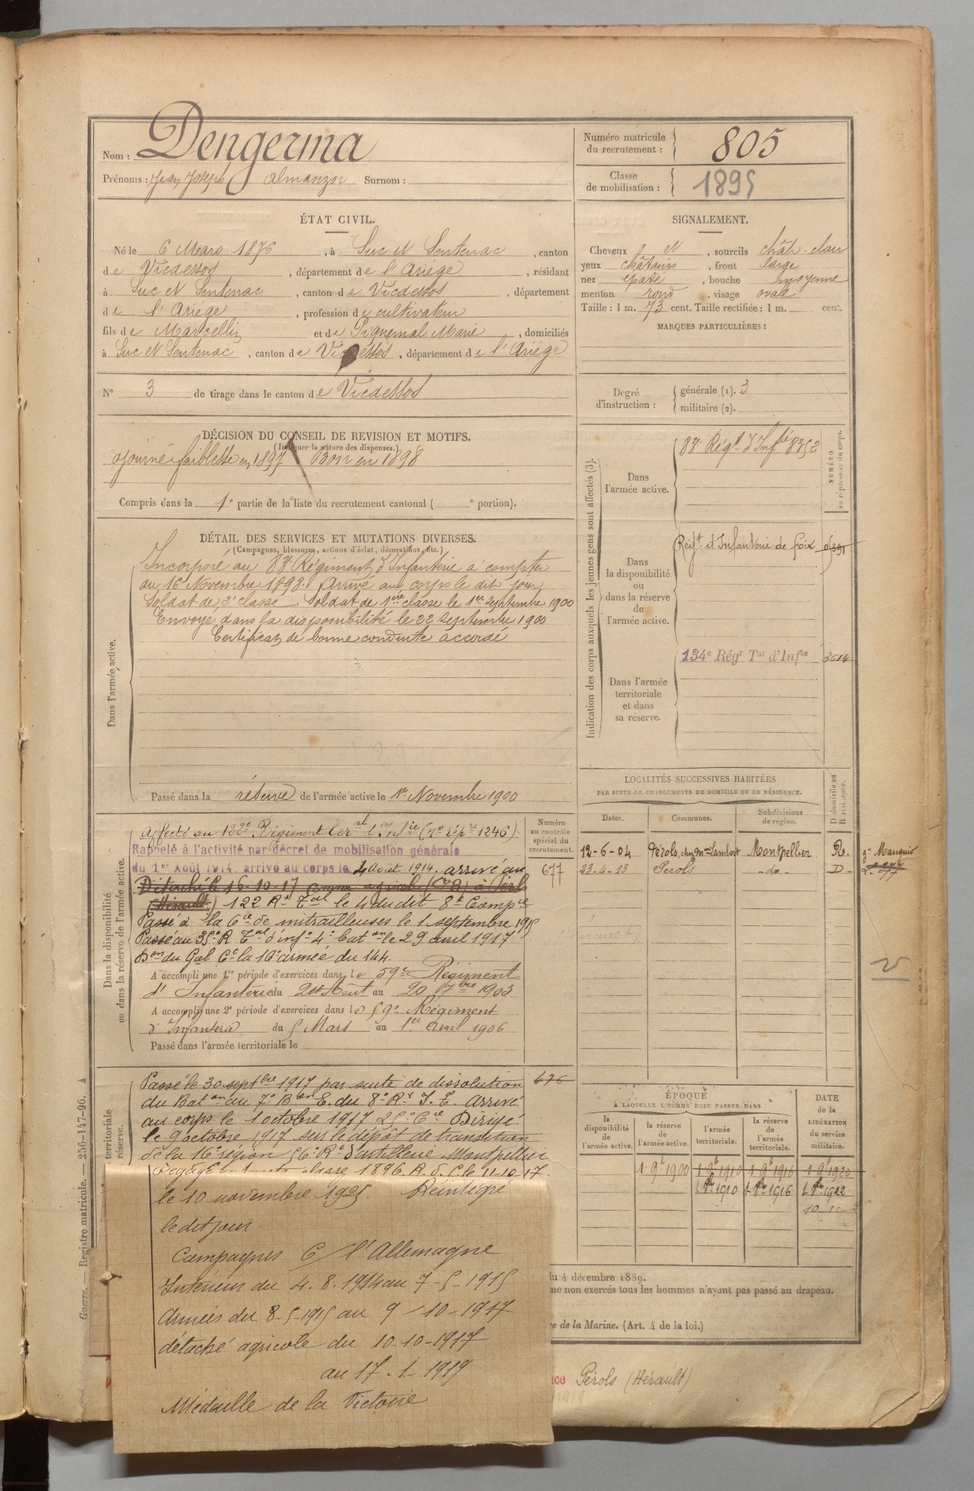 Nom : Dengerma
Prénoms : Jean Joseph Almanzor Surnom :
Numéro matricule du recrutement : 805
Classe de mobilisation : 1895
ÉTAT CIVIL.
Né le 6 Mars 1876, à Suc et Sentenac, canton
de Vicdessos, département de l'Ariège, résidant
à Suc et Sentenac, canton de Vicdessos, département
de l'Ariège, profession de cultivateur
fils de Marcellin et de Piquemal Marie, domiciliés
à Suc et Sentenac, canton de Vicdessos, département de l'Ariège
N° 3 de tirage dans le canton de Vicdessos
SIGNALEMENT.
Cheveux et, sourcils chât-clair
yeux châtains, front large
nez épaté, bouche moyenne
menton rond, visage ovale
Taille : 1 m. 73 cent. Taille rectifiée : 1 m. cent.
MARQUES PARTICULIÈRES :
Degré d'instruction : générale (1). 3
militaire (2).
DÉCISION DU CONSEIL DE REVISION ET MOTIFS.
(Indiquer la nature des dispenses.)
ajourné faiblesse en 1897 Bon en 1898
Compris dans la 1e partie de la liste du recrutement cantonal ( e portion).
DÉTAIL DES SERVICES ET MUTATIONS DIVERSES.
(Campagnes, blessures, actions d'éclat, décorations, etc.)
Dans l'armée active.
Incorporé au 83e Régiment d'Infanterie à compter
du 16 Novembre 1898. Arrivé au corps le dit jour
Soldat de 2e classe. Soldat de 1ère classe le 1er septembre 1900
Envoyé dans la disponibilité le 22 septembre 1900
Certificat de bonne conduite accordé
Passé dans la réserve de l'armée active le 1er Novembre 1900
Indication des corps auxquels les jeunes gens sont affectés (3).
NUMÉRO
Dans l'armée active. 83e Régt d'Infie 8352
Dans la disponibilité ou dans la réserve de l'armée active. Régt d'Infanterie de Foix
Dans l'armée territoriale et dans sa réserve. 134e Régt Tal d'Infie 3614
LOCALITÉS SUCCESSIVES HABITÉES
PAR SUITE DE CHANGEMENTS DE DOMICILE OU DE RÉSIDENCE.
Dates. Communes. Subdivisions de région. D domicile ou R résidence.
12-6-04 Pérols, Montpellier R.
23-4-13 Pérols -do- D-
Dans la disponibilité ou dans la réserve de l'armée active.
Numéro au contrôle spécial du recrutement.
677
Affecté au 122e Régiment Teral Infie (no rép. 1246)
Rappelé à l'activité par décret de mobilisation générale
du 1er Août 1914. arrivé au corps le 4 Août 1914. arrivé au
Détaché le 16-10-17 comme
(Hérault) 122 Rt Tal le 4 du dit 8e Compie
Passé à la 6ie de mitrailleuses le 1 septembre 1915
Passé au 35e R Tal d'infie 4e baton le 29 avril 1917
Don du Gal Ct la 16e armée du 14.4.
A accompli une 1re période d'exercices dans le 59e Régiment
d'Infanterie du 24 Août au 20 7bre 1903
A accompli une 2e période d'exercices dans le 59e Régiment
d'Infanterie du 5 Mars au 1er Avril 1906
Passé dans l'armée territoriale le
territoriale
réserve.
676
Passé le 30 septbre 1917 par suite de dissolution
du Baton au 7e Bon E. du 8e Rt I. E. arrivé
au corps le 1 octobre 1917 25e Cie Dirigé
le 9 octobre 1917 sur le dépôt de transition
de la 16e région 56e Rt d'artillerie Montpellier
classe 1896 R.A.T. le 11.10.17.
le 10 novembre 1925. Réintégré
le dit jour
Campagnes C/ l'Allemagne
Intérieur du 4.8.1914 au 7-5-1915
Armées du 8-5-1915 au 9-10-1917
détaché agricole du 10-10-1917
au 17.1.1919
Médaille de la Victoire
ÉPOQUE
À LAQUELLE L'HOMME DOIT PASSER DANS
la disponibilité de l'armée active. la réserve de l'armée active. l'armée territoriale. la réserve de l'armée territoriale. DATE de la LIBÉRATION du service militaire.
1 9e 1900 1 9e 1910 1 9e 1916 1 9e 1920
1 8bre 1910 1 8bre 1916 1 8bre 1922
du 4 décembre 1889.
me non exercés tous les hommes n'ayant pas passé au drapeau.
re de la Marine. (Art. 4 de la loi.)
nce Pérols (Hérault)
Guerre. — Registre matricule. — 256-147-96. 4